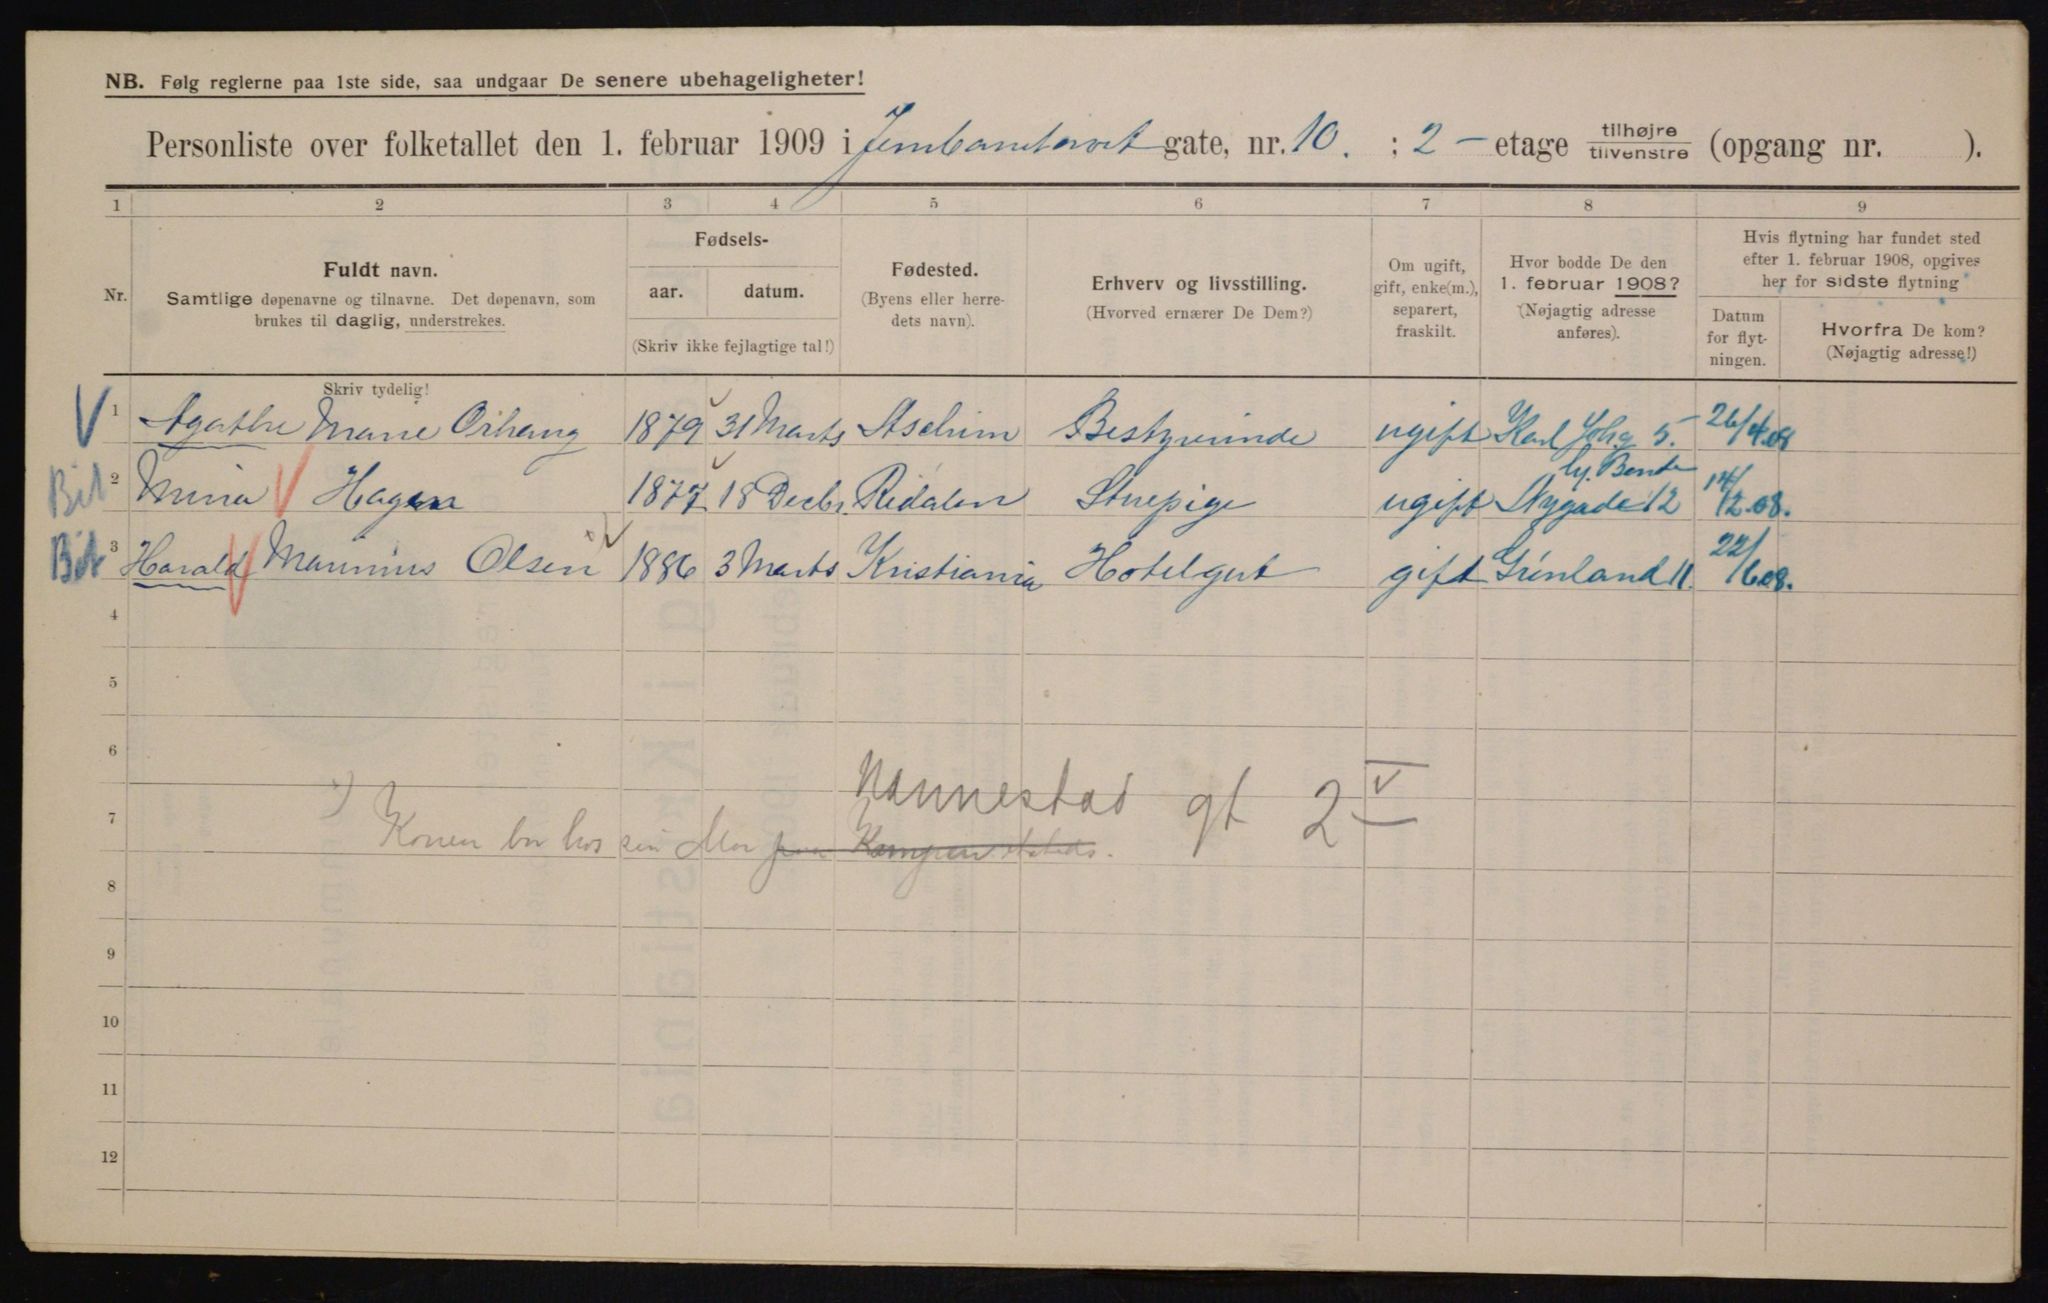 NB. Følg reglerne paa 1ste side, saa undgaar De senere ubehageligheter!
Personliste over folketallet den 1. februar 1909 i Jernbanetorvet gate, nr. 10. ; 2 - etage tilhøjre tilvenstre (opgang nr. ).
1 2 3 4 5 6 7 8 9
Nr.
Fuldt navn.
Samtlige døpenavne og tilnavne. Det døpenavn, som
brukes til daglig, understrekes.
Fødsels-
aar. datum.
(Skriv ikke fejlagtige tal!)
Fødested.
(Byens eller herre-
dets navn).
Erhverv og livsstilling.
(Hvorved ernærer De Dem?)
Om ugift,
gift, enke(m.),
separert,
fraskilt.
Hvor bodde De den
1. februar 1908?
(Nøjagtig adresse
anføres).
Hvis flytning har fundet sted
efter 1. februar 1908, opgives
her for sidste flytning
Datum
for flyt-
ningen.
Hvorfra De kom?
(Nøjagtig adresse!)
Skriv tydelig!
V 1 Agathe Marie 1879 31 Marts Aschim Bestyrerinde ugift Karl Johg 5. 26/4.08
Bil 2 Mina V Hagen 1877 18 Decbr. Ridalen Stuepige ugift Nygade 12 14/12.08.
3 Harald V Marinius Olsen 1886 3 Marts Kristiania Hotelgut gift Grünland 11. 22/6.08.
4
5
6
Nannestad gt 2 V
7
Konen bor hos sin Mor paa Kampen
8
9
10
11
12